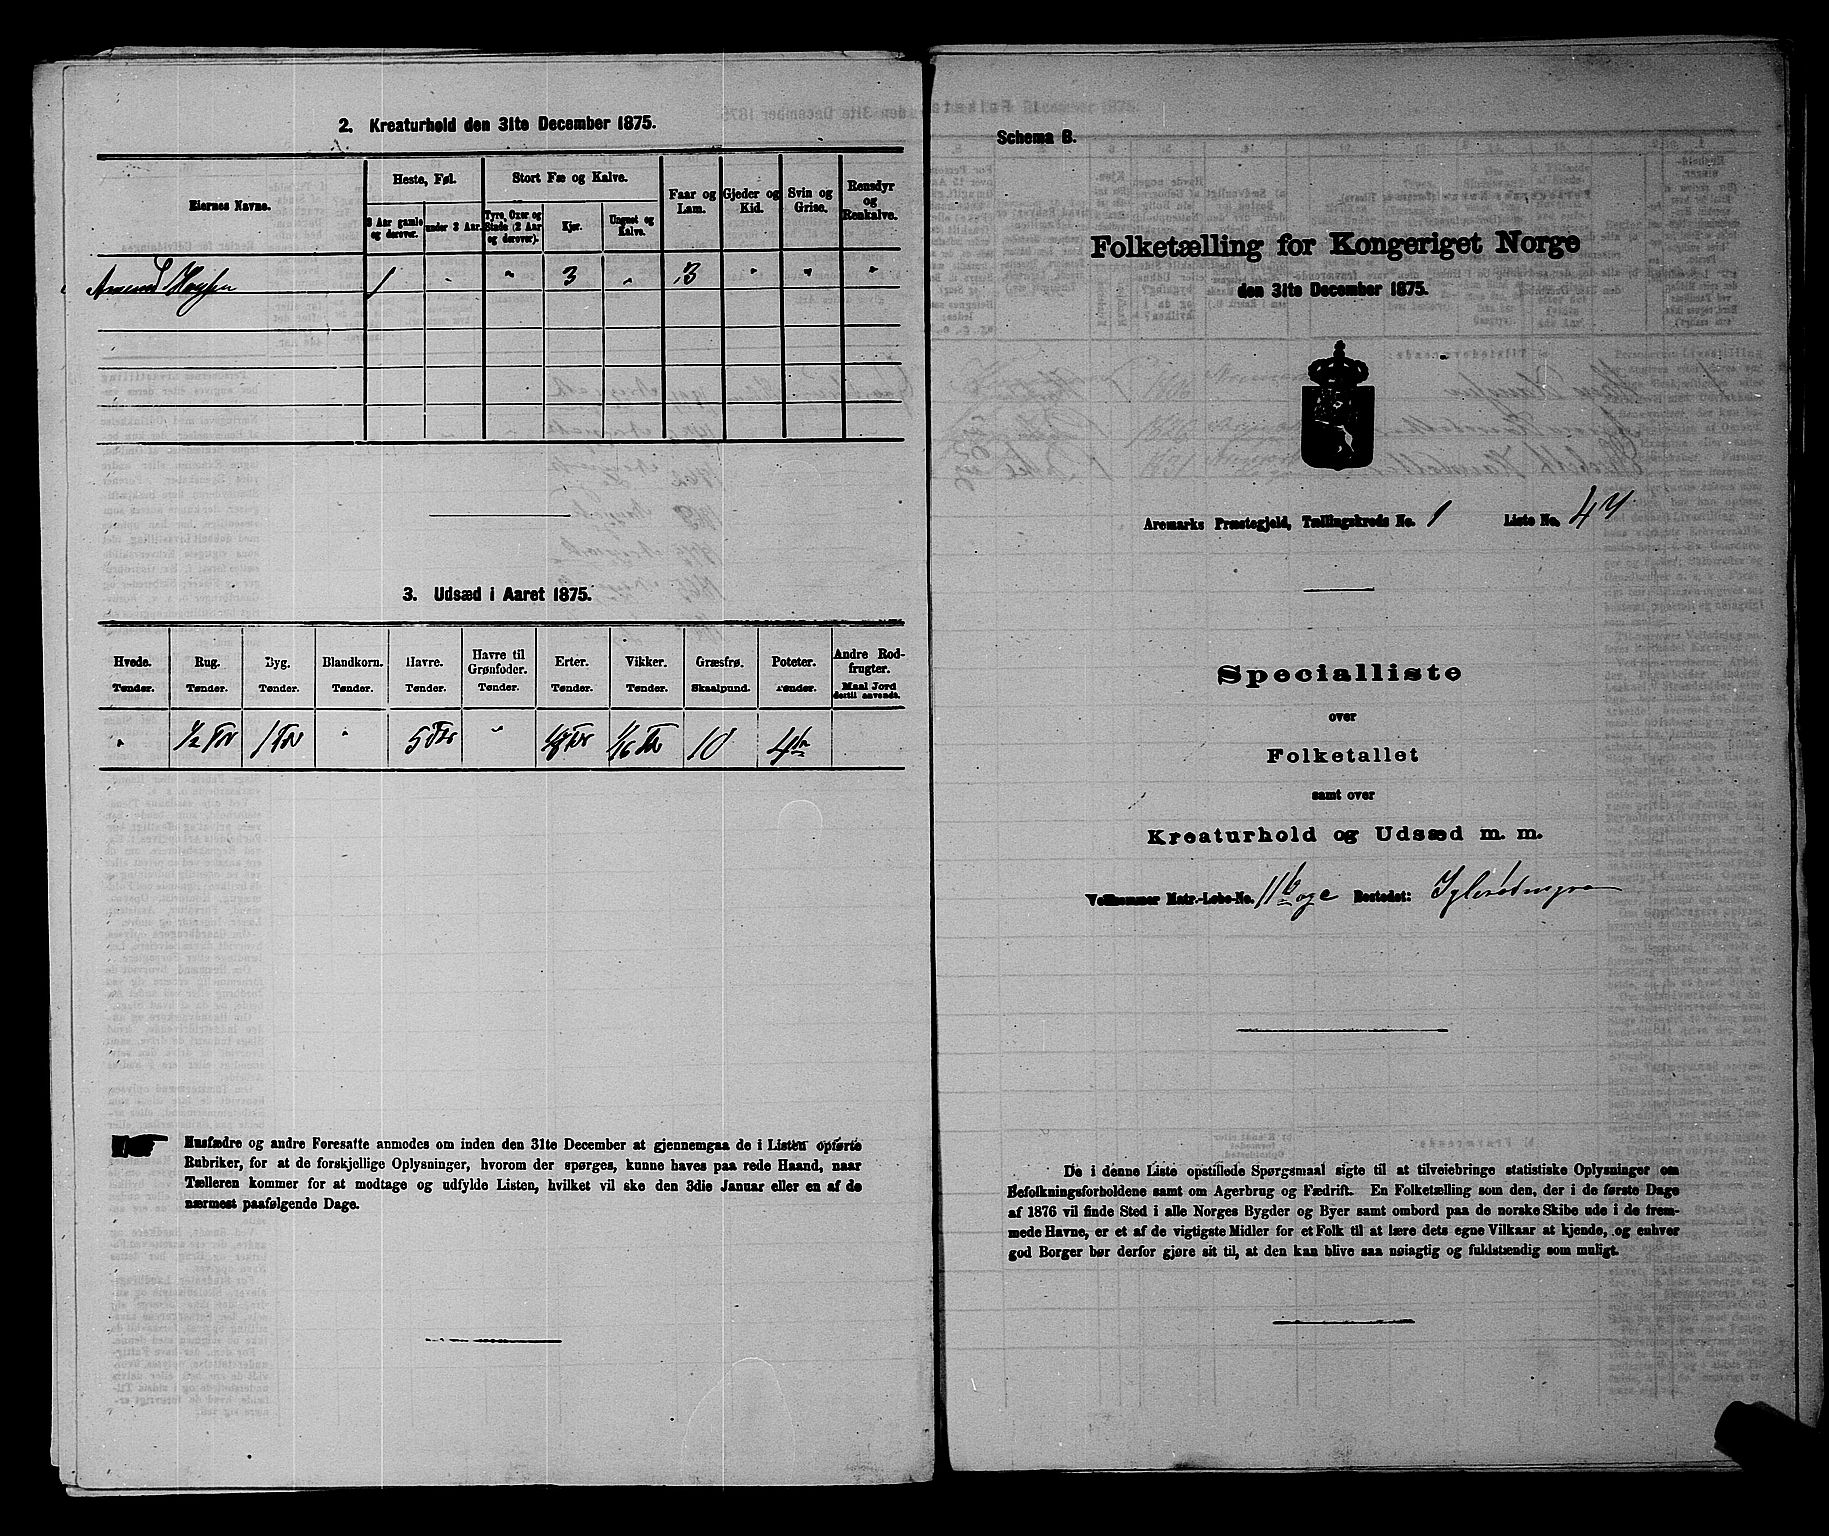 2. Kreaturhold den 31te December 1875.
Eiernes Navne.
Heste, Føl.
3 Aar gamle og derover.
under 3 Aar.
Stort Fæ og Kalve.
Tyre, Oxer og Stude (2 Aar og derover).
Kjør.
Ungnøt og Kalve.
Faar og Lam.
Gjeder og Kid.
Svin og Grise.
Rensdyr og Renkalve.
1 - " 3 " 3 " " "
3. Udsæd i Aaret 1875.
Hvede. Rug. Byg. Blandkorn. Havre. Havre til Grønfoder. Erter. Vikker. Græsfrø. Poteter. Andre Rodfrugter.
Tønder. Tønder. Tønder. Tønder. Tønder. Tønder. Tønder. Tønder. Skaalpund. Tønder. Maal Jord dertil anvendt.
" 1/2 Tør 1 Tør " 5 Tør " 1/8 Tør 1/16 Tr 10 4 tr
Husfædre og andre Foresatte anmodes om inden den 31te December at gjennemgaa de i Listen opførte
Rubriker, for at de forskjellige Oplysninger, hvorom der spørges, kunne haves paa rede Haand, naar
Tælleren kommer for at modtage og udfylde Listen, hvilket vil ske den 3die Januar eller en af de
nærmest paafølgende Dage.
Schema B.
Folketælling for Kongeriget Norge
den 31te December 1875.
Aremarks Præstegjeld, Tællingskreds No. 1 Liste No. 47
Specialliste
over
Folketallet
samt over
Kreaturhold og Udsæd m. m.
Vedkommer Matr.-Løbe-No. 11 b og c Bostedet:
De i denne Liste opstillede Spørgsmaal sigte til at tilveiebringe statistiske Oplysninger om
Befolkningsforholdene samt om Agerbrug og Fædrift. En Folketælling som den, der i de første Dage
af 1876 vil finde Sted i alle Norges Bygder og Byer samt ombord paa de norske Skibe ude i de frem-
mede Havne, er et af de vigtigste Midler for et Folk til at lære dets egne Vilkaar at kjende, og enhver
god Borger bør derfor gjøre sit til, at den kan blive saa nøiagtig og fuldstændig som muligt.